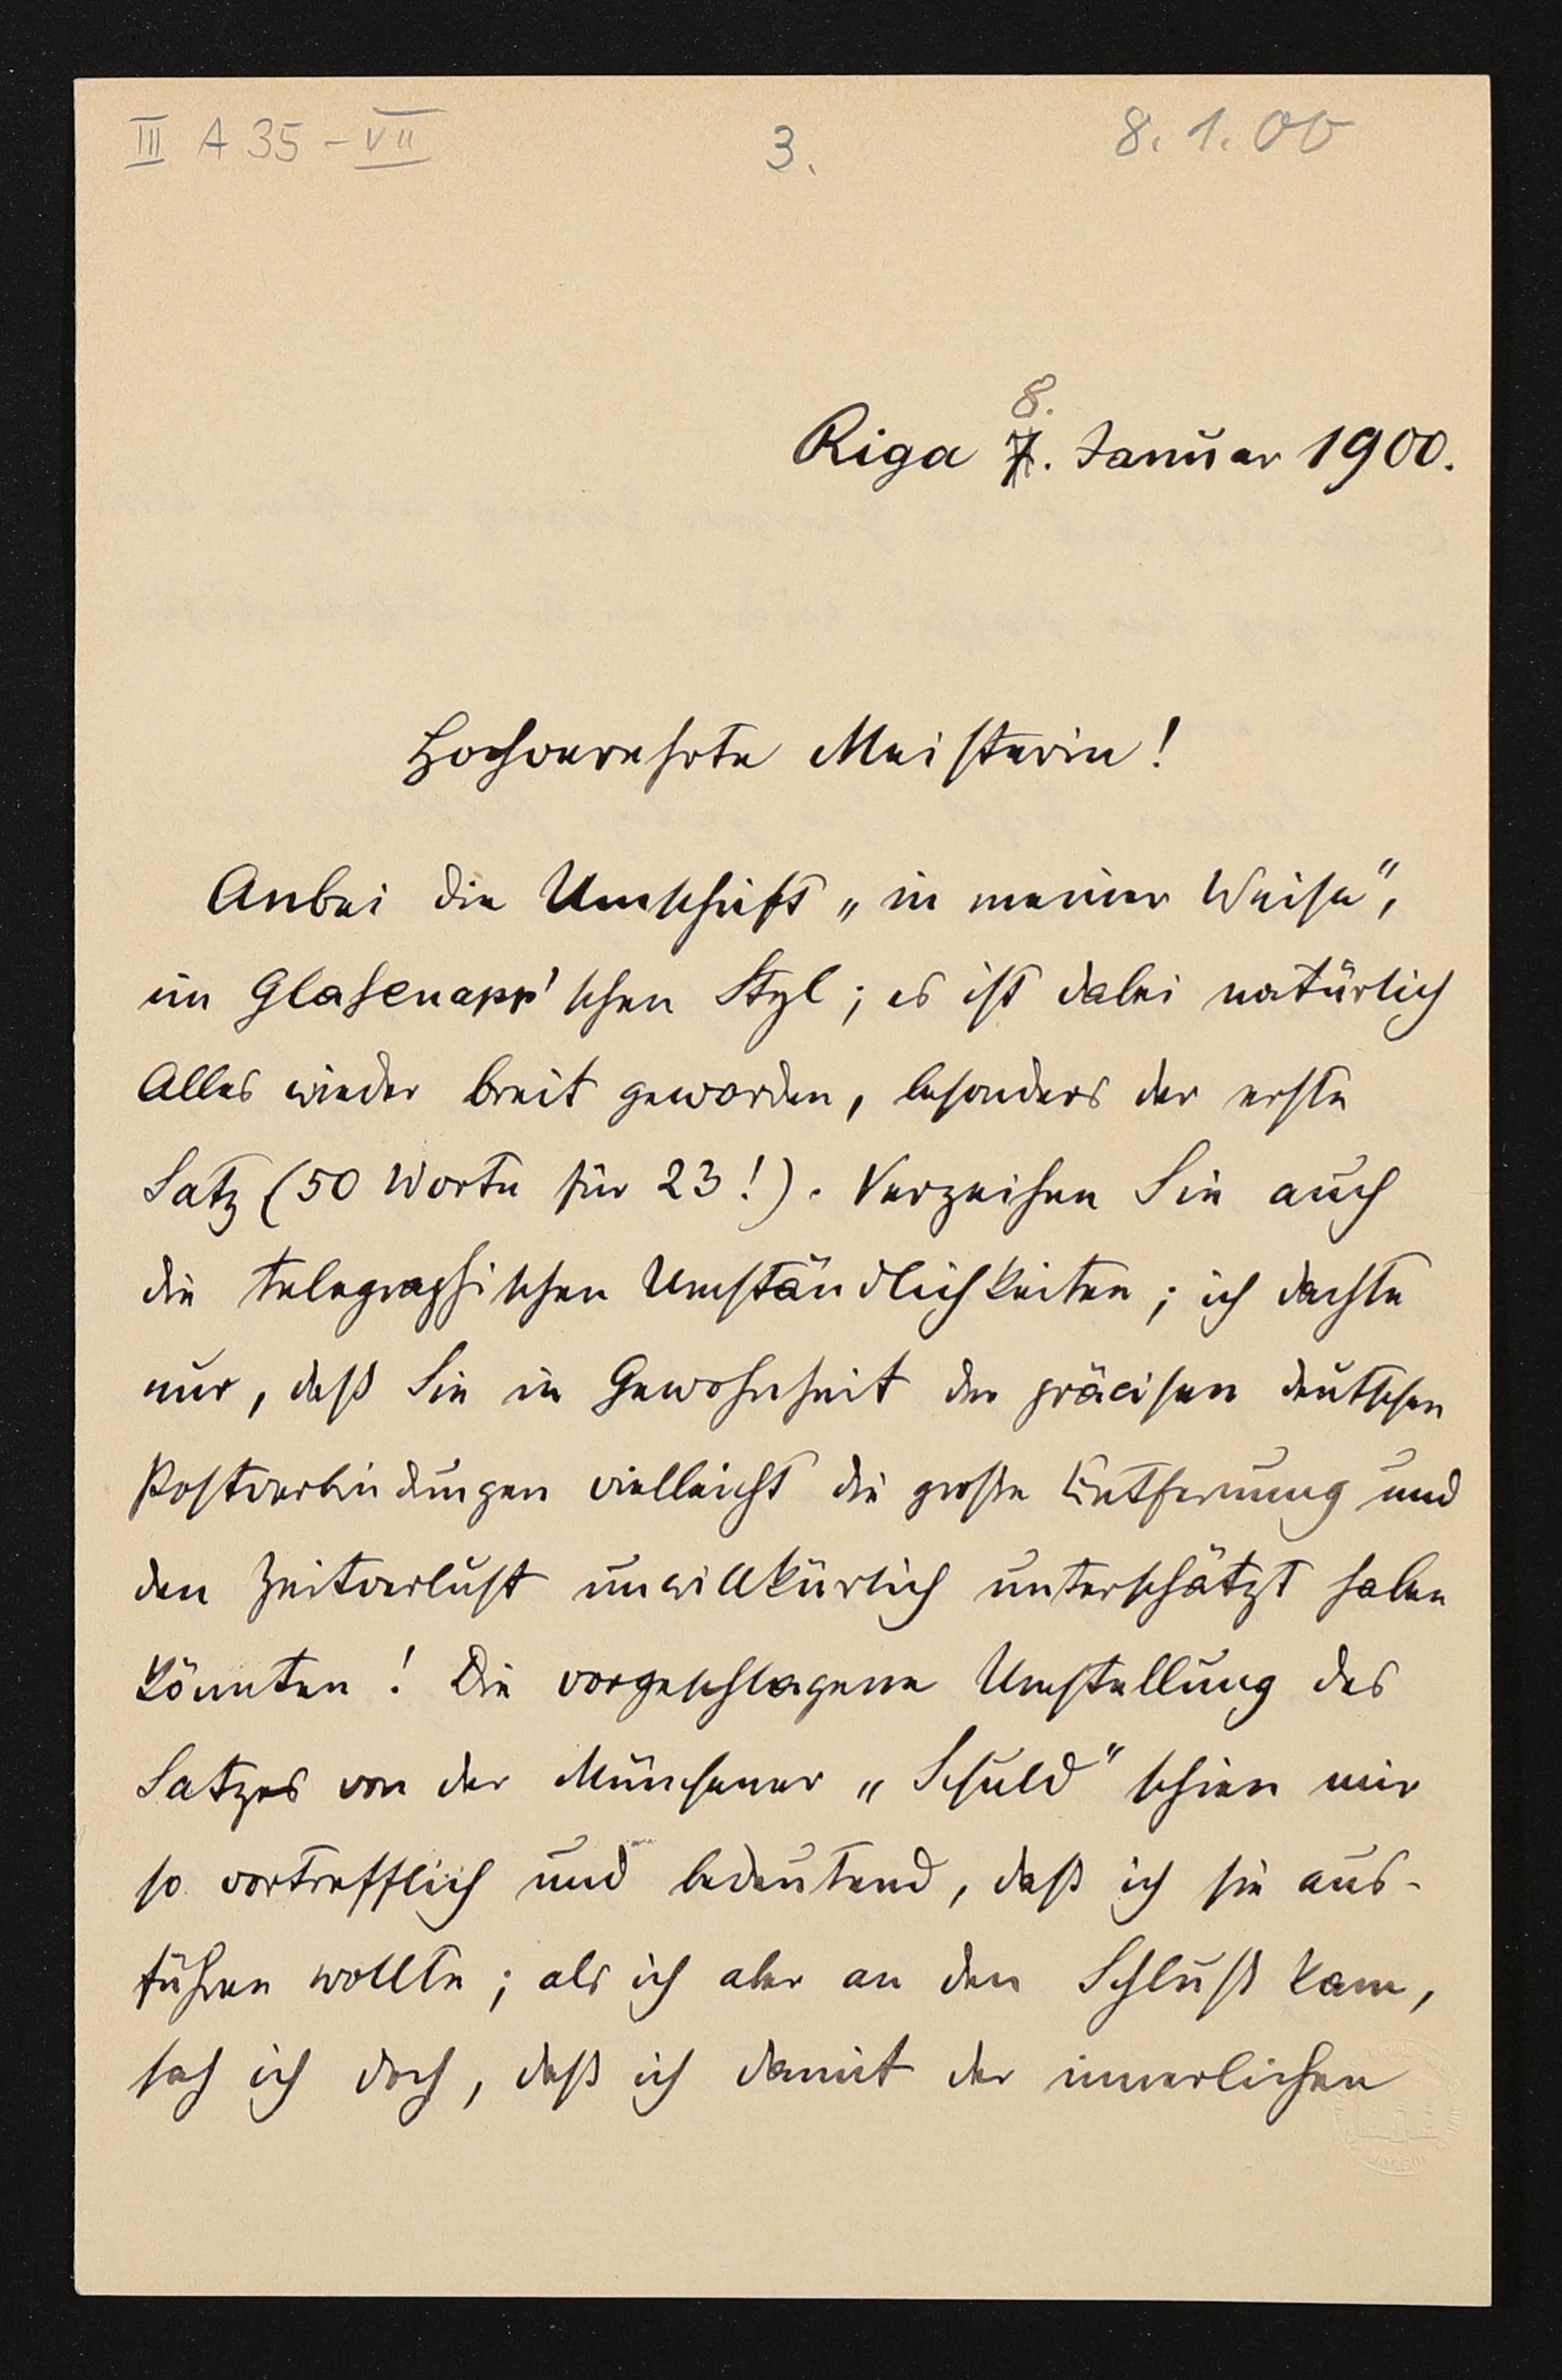 III A 35 - VII 3. 8. 1. 00
8.
Riga 7. Januar 1900.
Hochverehrte Meisterin!
Anbei die Umschrift „in meiner Weise",
im Glasenapp'schen Styl; es ist dabei natürlich
Alles wieder breit geworden, besonders der erste
Satz (50 Worte für 23!). Verzeihen Sie auch
die telegraphischen Umständlichkeiten; ich dachte
nur, daß Sie in Gewohnheit der präcisen deutschen
Postverbindungen vielleicht die große Entfernung und
den Zeitverlust unwillkürlich unterschätzt haben
könnten! Die vorgeschlagene Umstellung des
Satzes von der Münchener „Schuld" schien mir
so vortrefflich und bedeutend, daß ich sie aus-
führen wollte; als ich aber an den Schluß kam,
sah ich doch, daß ich damit der innerlichen